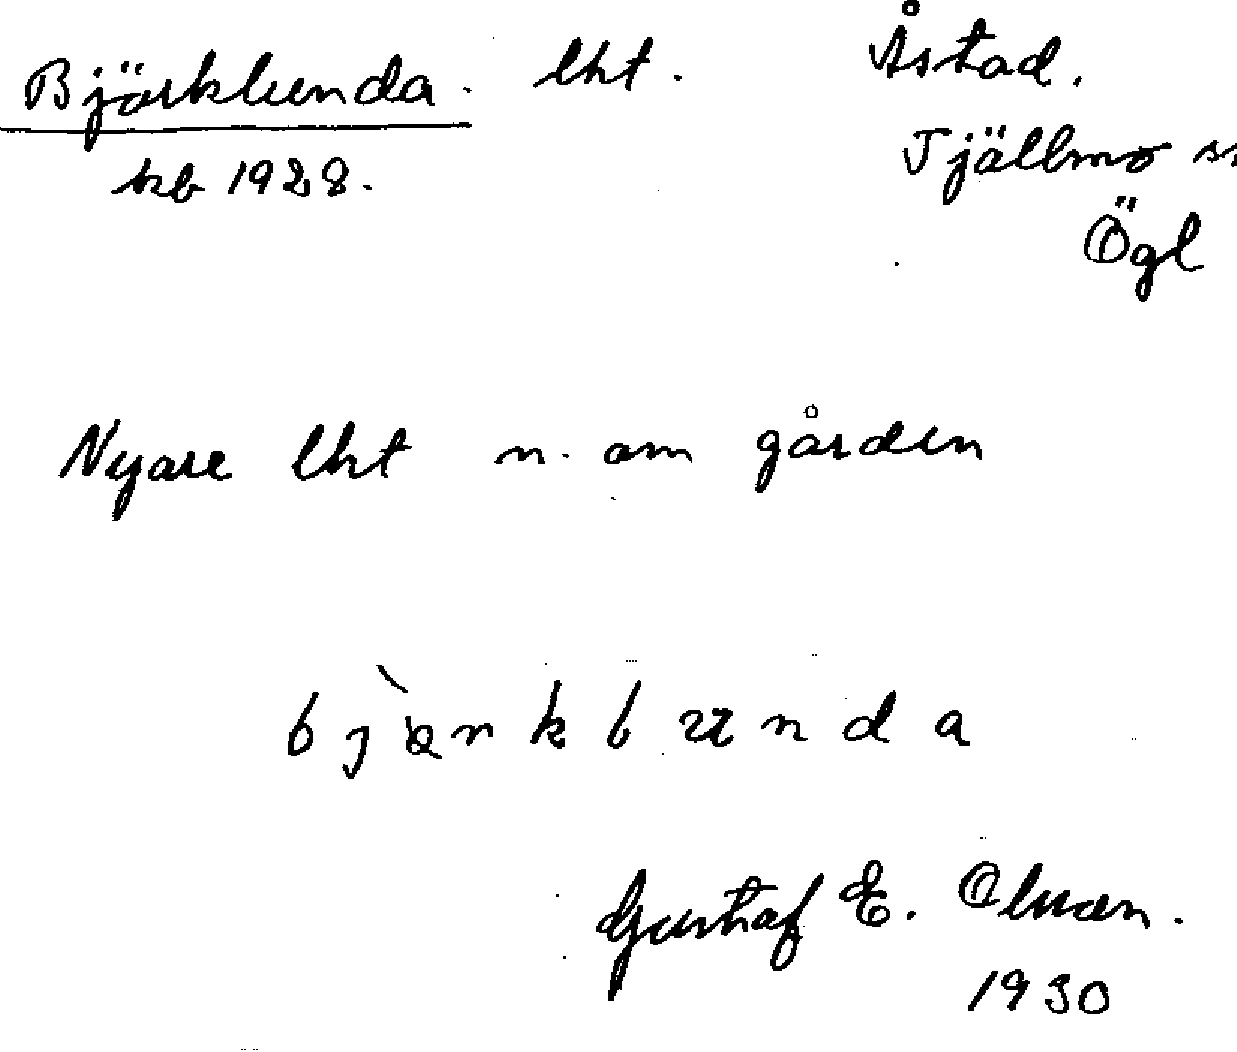 Björklunda. lht. Åstad.
kb 1928. Tjällmo sn
Ögl
Nyare lht n. om gården
Gustaf E. Olson.
1930